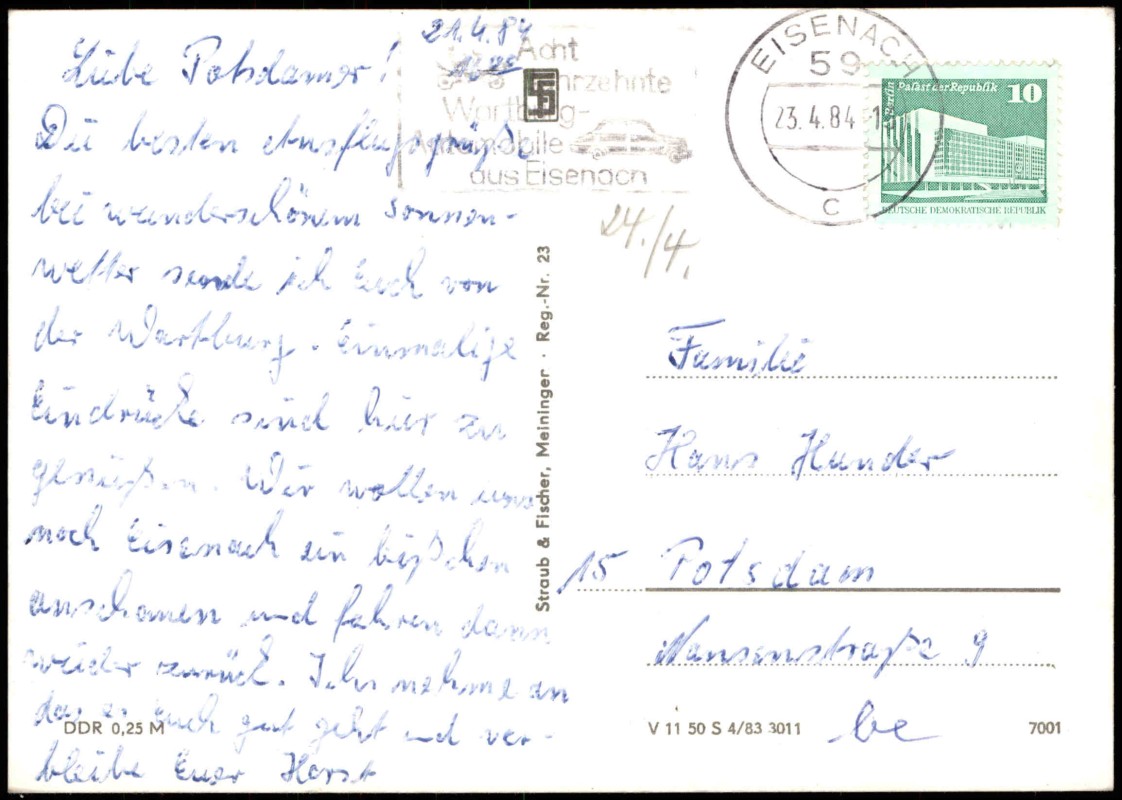 21.4.84
Liebe Potsdamer!
Die besten Ausflugsgrüße
bei wunderschönem Sonnen-
wetter sende ich Euch von
der Wartburg. Einmalige
Eindrücke sind hier zu
genießen. Wir wollen uns
noch Eisenach ein bißchen
anschauen und fahren dann
wieder zurück. Ich nehme an
das es Euch gut geht und ver-
bleibe Euer Horst
DDR 0,25 M
Acht
Jahrzehnte
Wartburg-
Automobile
aus Eisenach
EISENACH
59
23.4.84
C
Berlin Palast der Republik 10
DEUTSCHE DEMOKRATISCHE REPUBLIK
24./4.
Straub & Fischer, Meininger · Reg.-Nr. 23
Familie
Hans Hunder
15 Potsdam
Nansenstraße 9
be
V 11 50 S 4/83 3011
7001